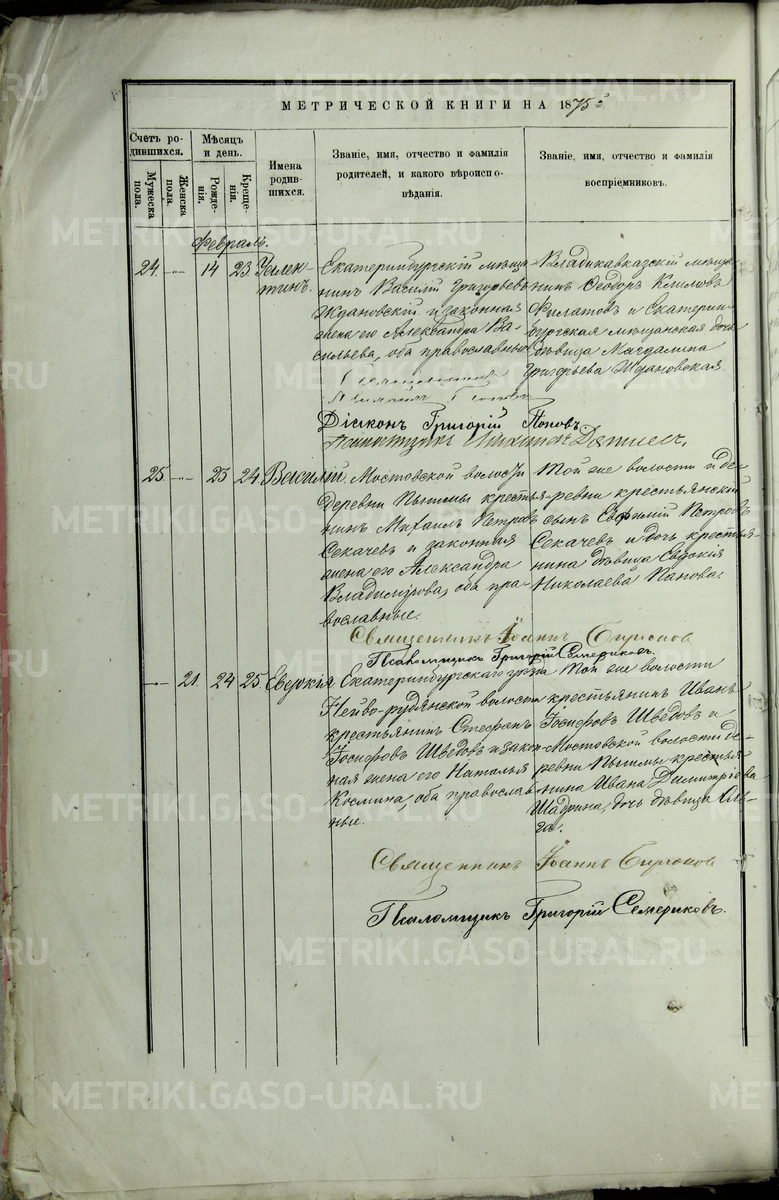 МЕТРИЧЕСКОЙ КНИГИ НА 1875й
Счетъ родившихся.
Мужеска пола.
Женска пола.
Мѣсяцъ и день.
Рожденія.
Крещенія.
Имена родившихся.
Званіе, имя, отчество и фамилія
родителей, и какого вѣроиспо-
вѣданія.
Званіе, имя, отчество и фамилія
воспріемниковъ.
Февраль.
24.
14
23
Уален-
тинъ.
Екатеринбургскій мѣща-
нинъ Василій Григорьевъ
Ждановскій и законная
жена его Александра Ва-
сильева, оба православные
Владикавказскій мѣща-
нинъ Ѳеодоръ Климовъ
Филатовъ и Екатерин-
бургская мѣщанская дочь
дѣвица Магдалина
Григорьева Ждановская.
Діаконъ Григорій Поповъ
25
23
24.
Василій.
Мостовской волости
деревни Пышмы крестья-
нинъ Михаилъ Петровъ
Секачевъ и законная
жена его Александра
Владимірова, оба пра-
вославные.
Той же волости и де-
ревни крестьянскій
сынъ Евфимій Петровъ
Секачевъ и дочь крестья-
нина дѣвица Евдокія
Николаева Панова.
Священникъ Іоаннъ Бирюков
Псаломщикъ Григорій Семериковъ.
21.
24
25.
Евдокія.
Екатеринбургскаго уѣзда
Нейво-рудянской волости
крестьянинъ Стефанъ
Іосифовъ Шведовъ и закон-
ная жена его Наталья
Космина, оба православ-
ные.
Той же волости
крестьянинъ Иванъ
Іосифовъ Шведовъ и
Мостовской волости де-
ревни Пышмы крестья-
нина Ивана Димитріева
Шадрина, дочь дѣвица Оль-
га.
Священникъ Іоаннъ Бирюков
Псаломщикъ Григорій Семериковъ.
METRIKI.GASO-URAL.RU